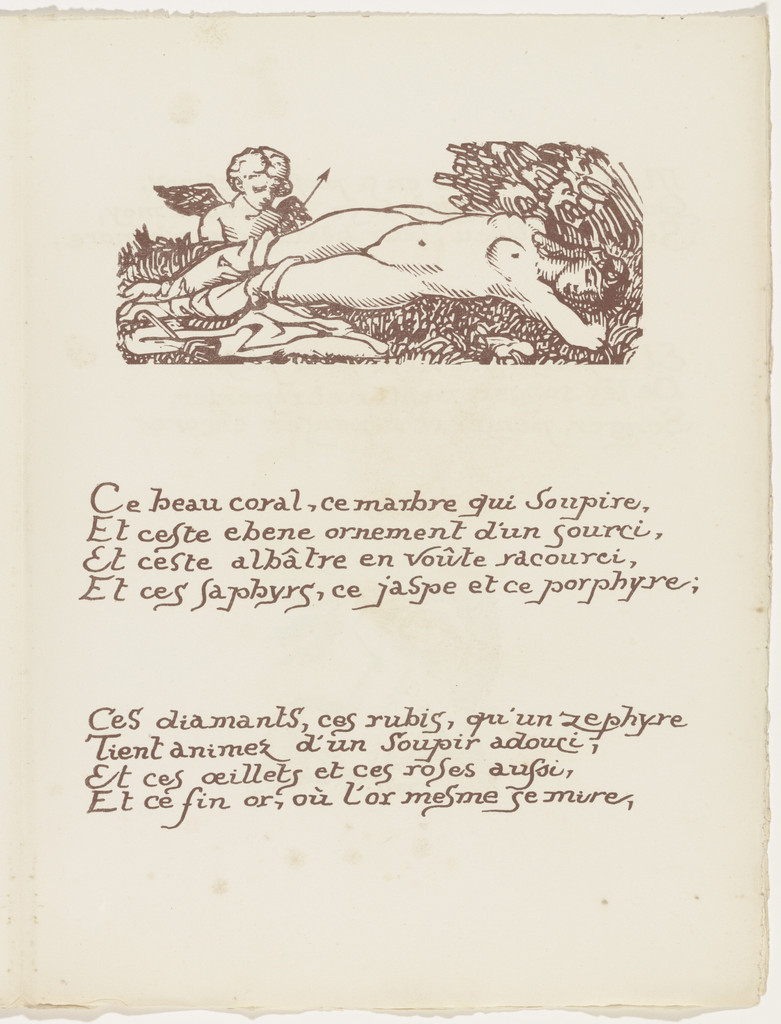 Ce beau coral, ce marbre qui soupire,
Et ceste ebene ornement d'un sourci,
Et ceste albâtre en voûte racourci,
Et ces saphyrs, ce jaspe et ce porphyre;
Ces diamants, ces rubis, qu'un zephyre
Tient animez d'un soupir adouci,
Et ces œillets et ces roses aussi,
Et ce fin or, où l'or mesme se mire,